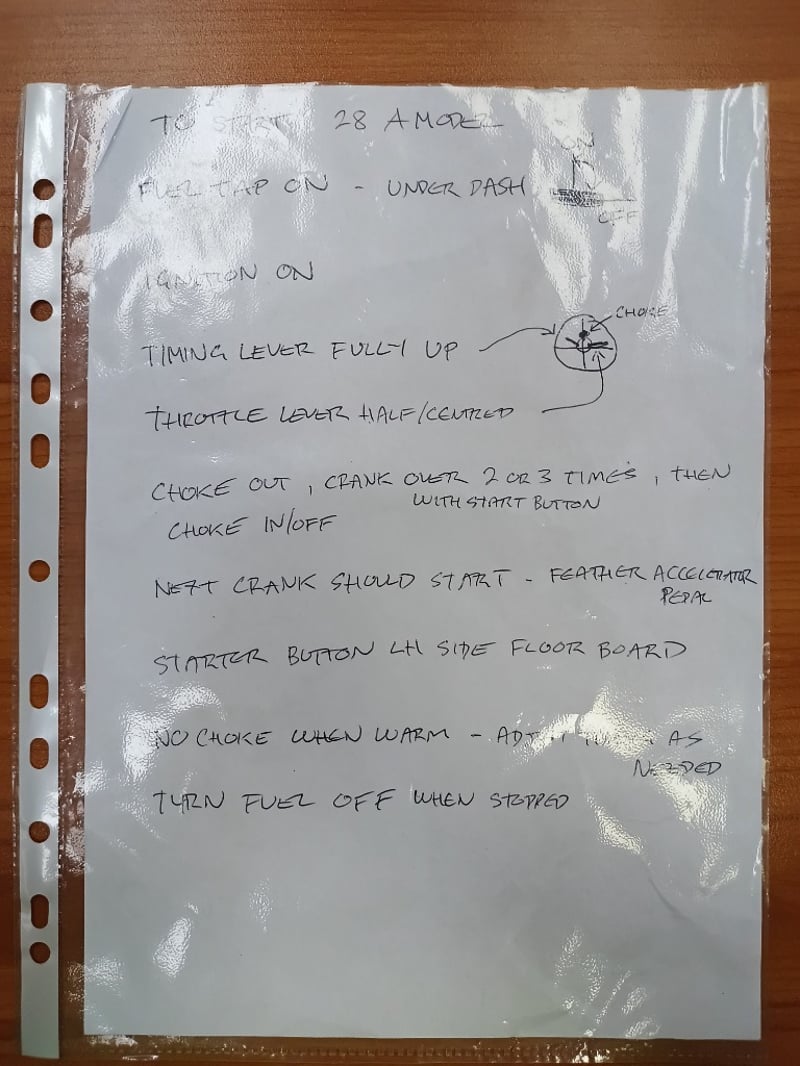 TO START 28 A MODEL
ON
FUEL TAP ON - UNDER DASH
OFF
IGNITION ON
CHOKE
TIMING LEVER FULLY UP
THROTTLE LEVER HALF/CENTRED
CHOKE OUT, CRANK OVER 2 OR 3 TIMES, THEN
WITH START BUTTON
CHOKE IN/OFF
NEXT CRANK SHOULD START - FEATHER ACCELERATOR
PEDAL
STARTER BUTTON LH SIDE FLOOR BOARD
NO CHOKE WHEN WARM - AS
NEEDED
TURN FUEL OFF WHEN STOPPED